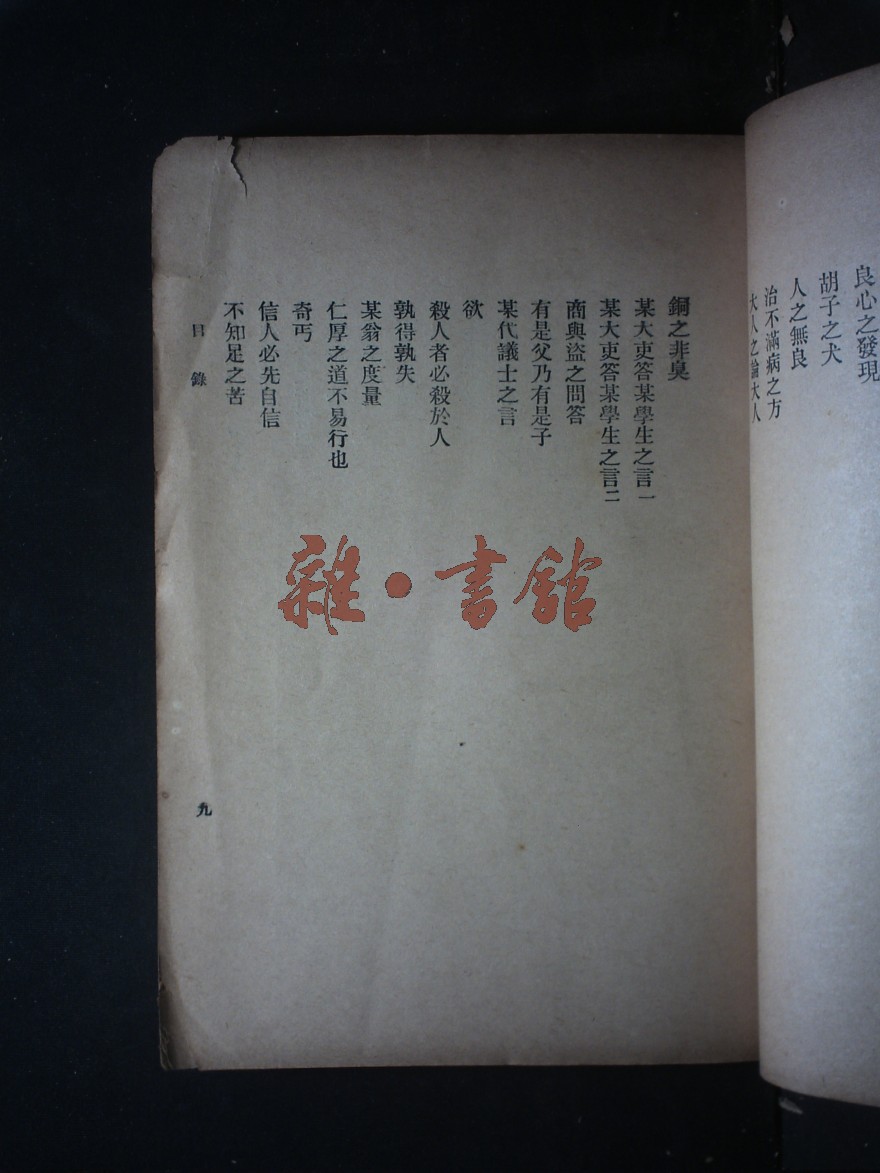 良心之發現
胡子之犬
人之無良
治不滿病之方
大人之論大人
銅之非臭
某大吏答某學生之言一
某大吏答某學生之言二
商與盜之問答
有是父乃有是子
某代議士之言
欲
殺人者必殺於人
孰得孰失
某翁之度量
仁厚之道不易行也
奇丐
信人必先自信
不知足之苦
目錄
九
雜·書館